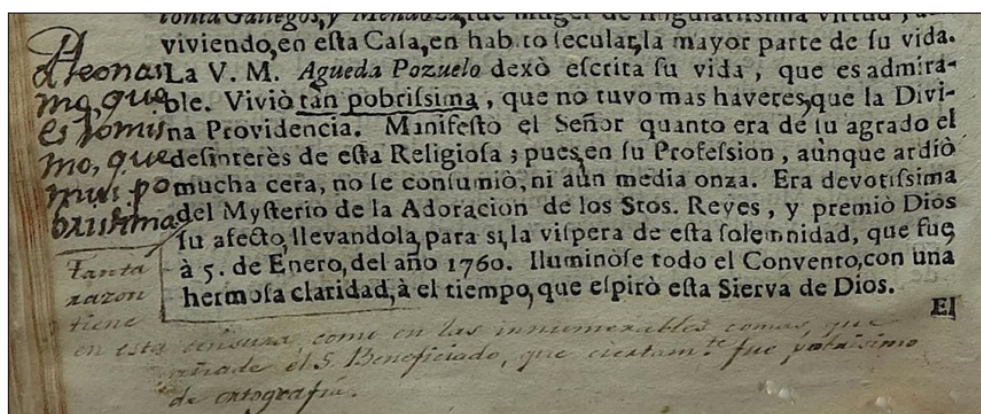 tonia Gallegos, y Mendoza, fue muger de ſingulariſsima virtud,
viviendo, en eſta Caſa, en habito ſecular, la mayor parte de ſu vida.
La V. M. Agueda Pozuelo dexò eſcrita ſu vida, que es admira-
ble. Viviò tan pobriſsima, que no tuvo mas haveres, que la Divi-
na Providencia. Manifeſtò el Señor quanto era de ſu agrado el
deſinterès de eſta Religioſa; pues, en ſu Profeſsion, aunque ardiò
mucha cera, no ſe conſumiò, ni aun media onza. Era devotiſsima
del Myſterio de la Adoracion de los Stos. Reyes, y premiò Dios
ſu afecto, llevandola, para sì, la viſpera de eſta ſolemnidad, que fue,
à 5. de Enero, del año 1760. Iluminòſe todo el Convento, con una
hermoſa claridad, à el tiempo, que eſpirò eſta Sierva de Dios.
El
Pleonas
mo, que
es lo mis
mo, que
mui po
brisima
Tanta
razon
tiene
en esta censura, como en las innumerables comas, que
añade el S. Beneficiado, que ciertam.te fue pobrisimo
de ortografia.